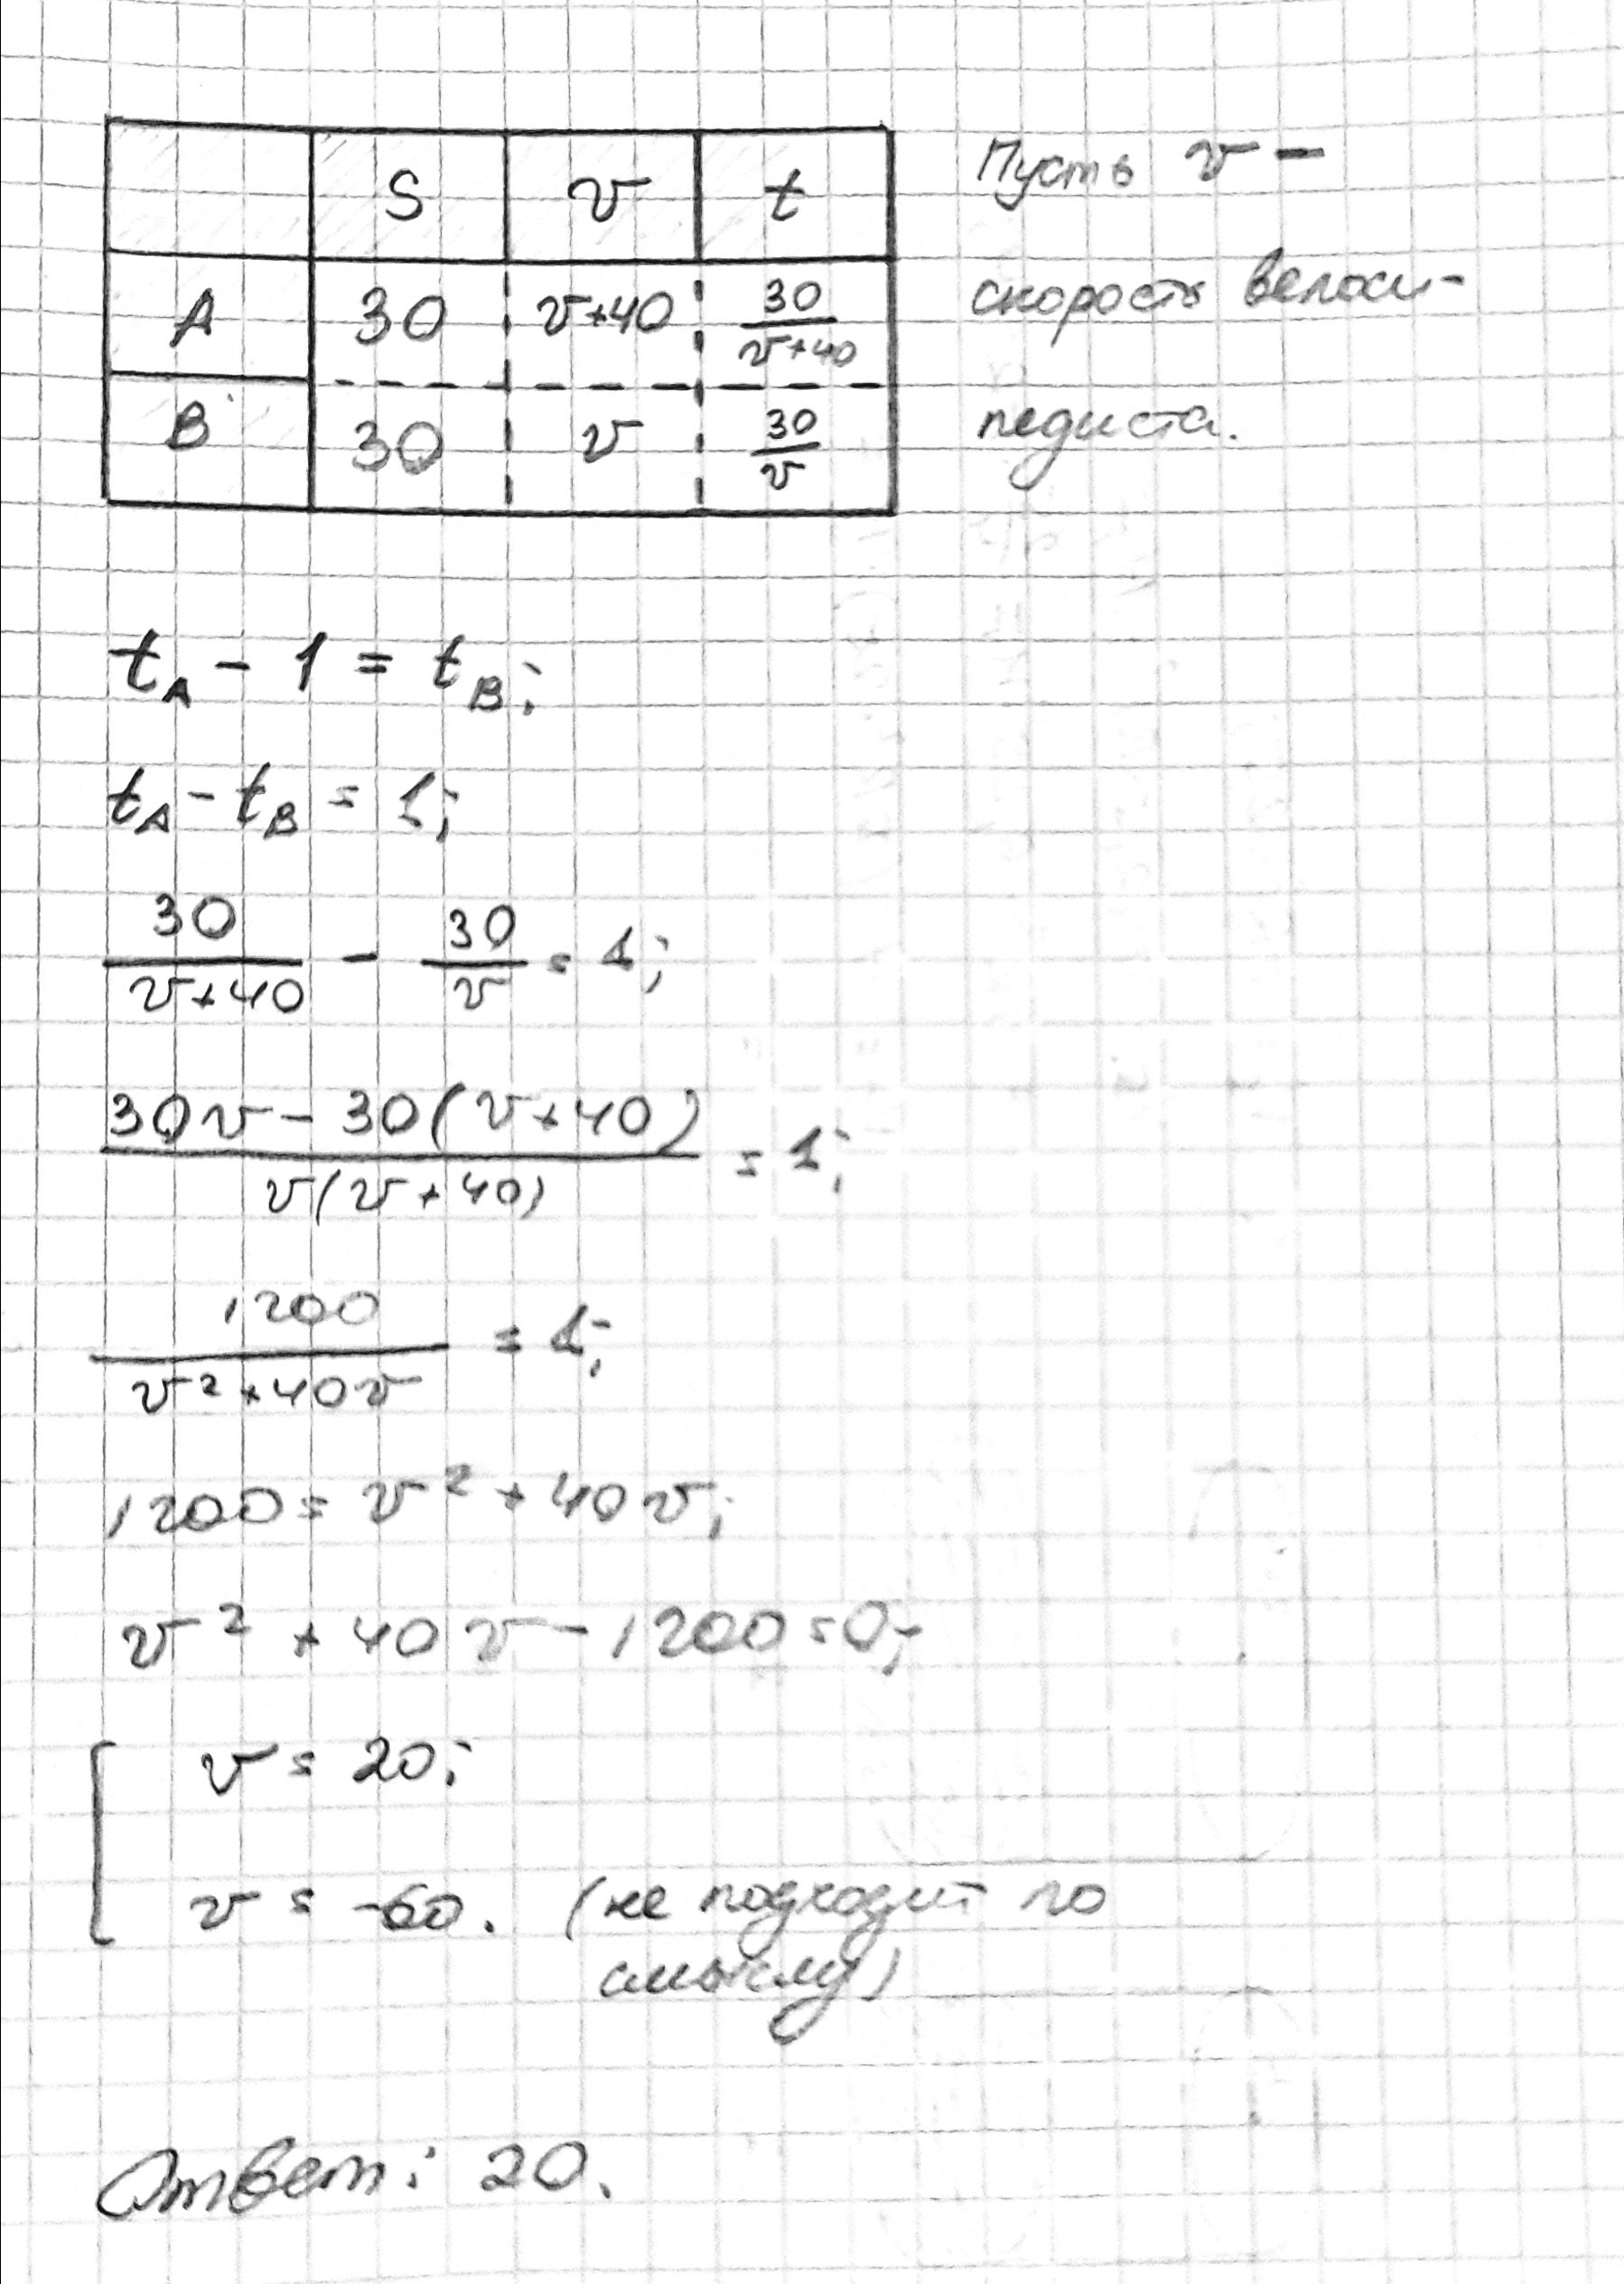 S v t
A 30 v+40 30/(v+40)
B 30 v 30/v
Пусть v –
скорость велоси-
педиста.
t_A - 1 = t_B;
t_A - t_B = 1;
30/(v+40) - 30/v = 1;
(30v - 30(v+40))/(v(v+40)) = 1;
1200/(v²+40v) = 1;
1200 = v² + 40v;
v² + 40v - 1200 = 0;
v = 20;
v = -60. (не подходит по
смыслу)
Ответ: 20.